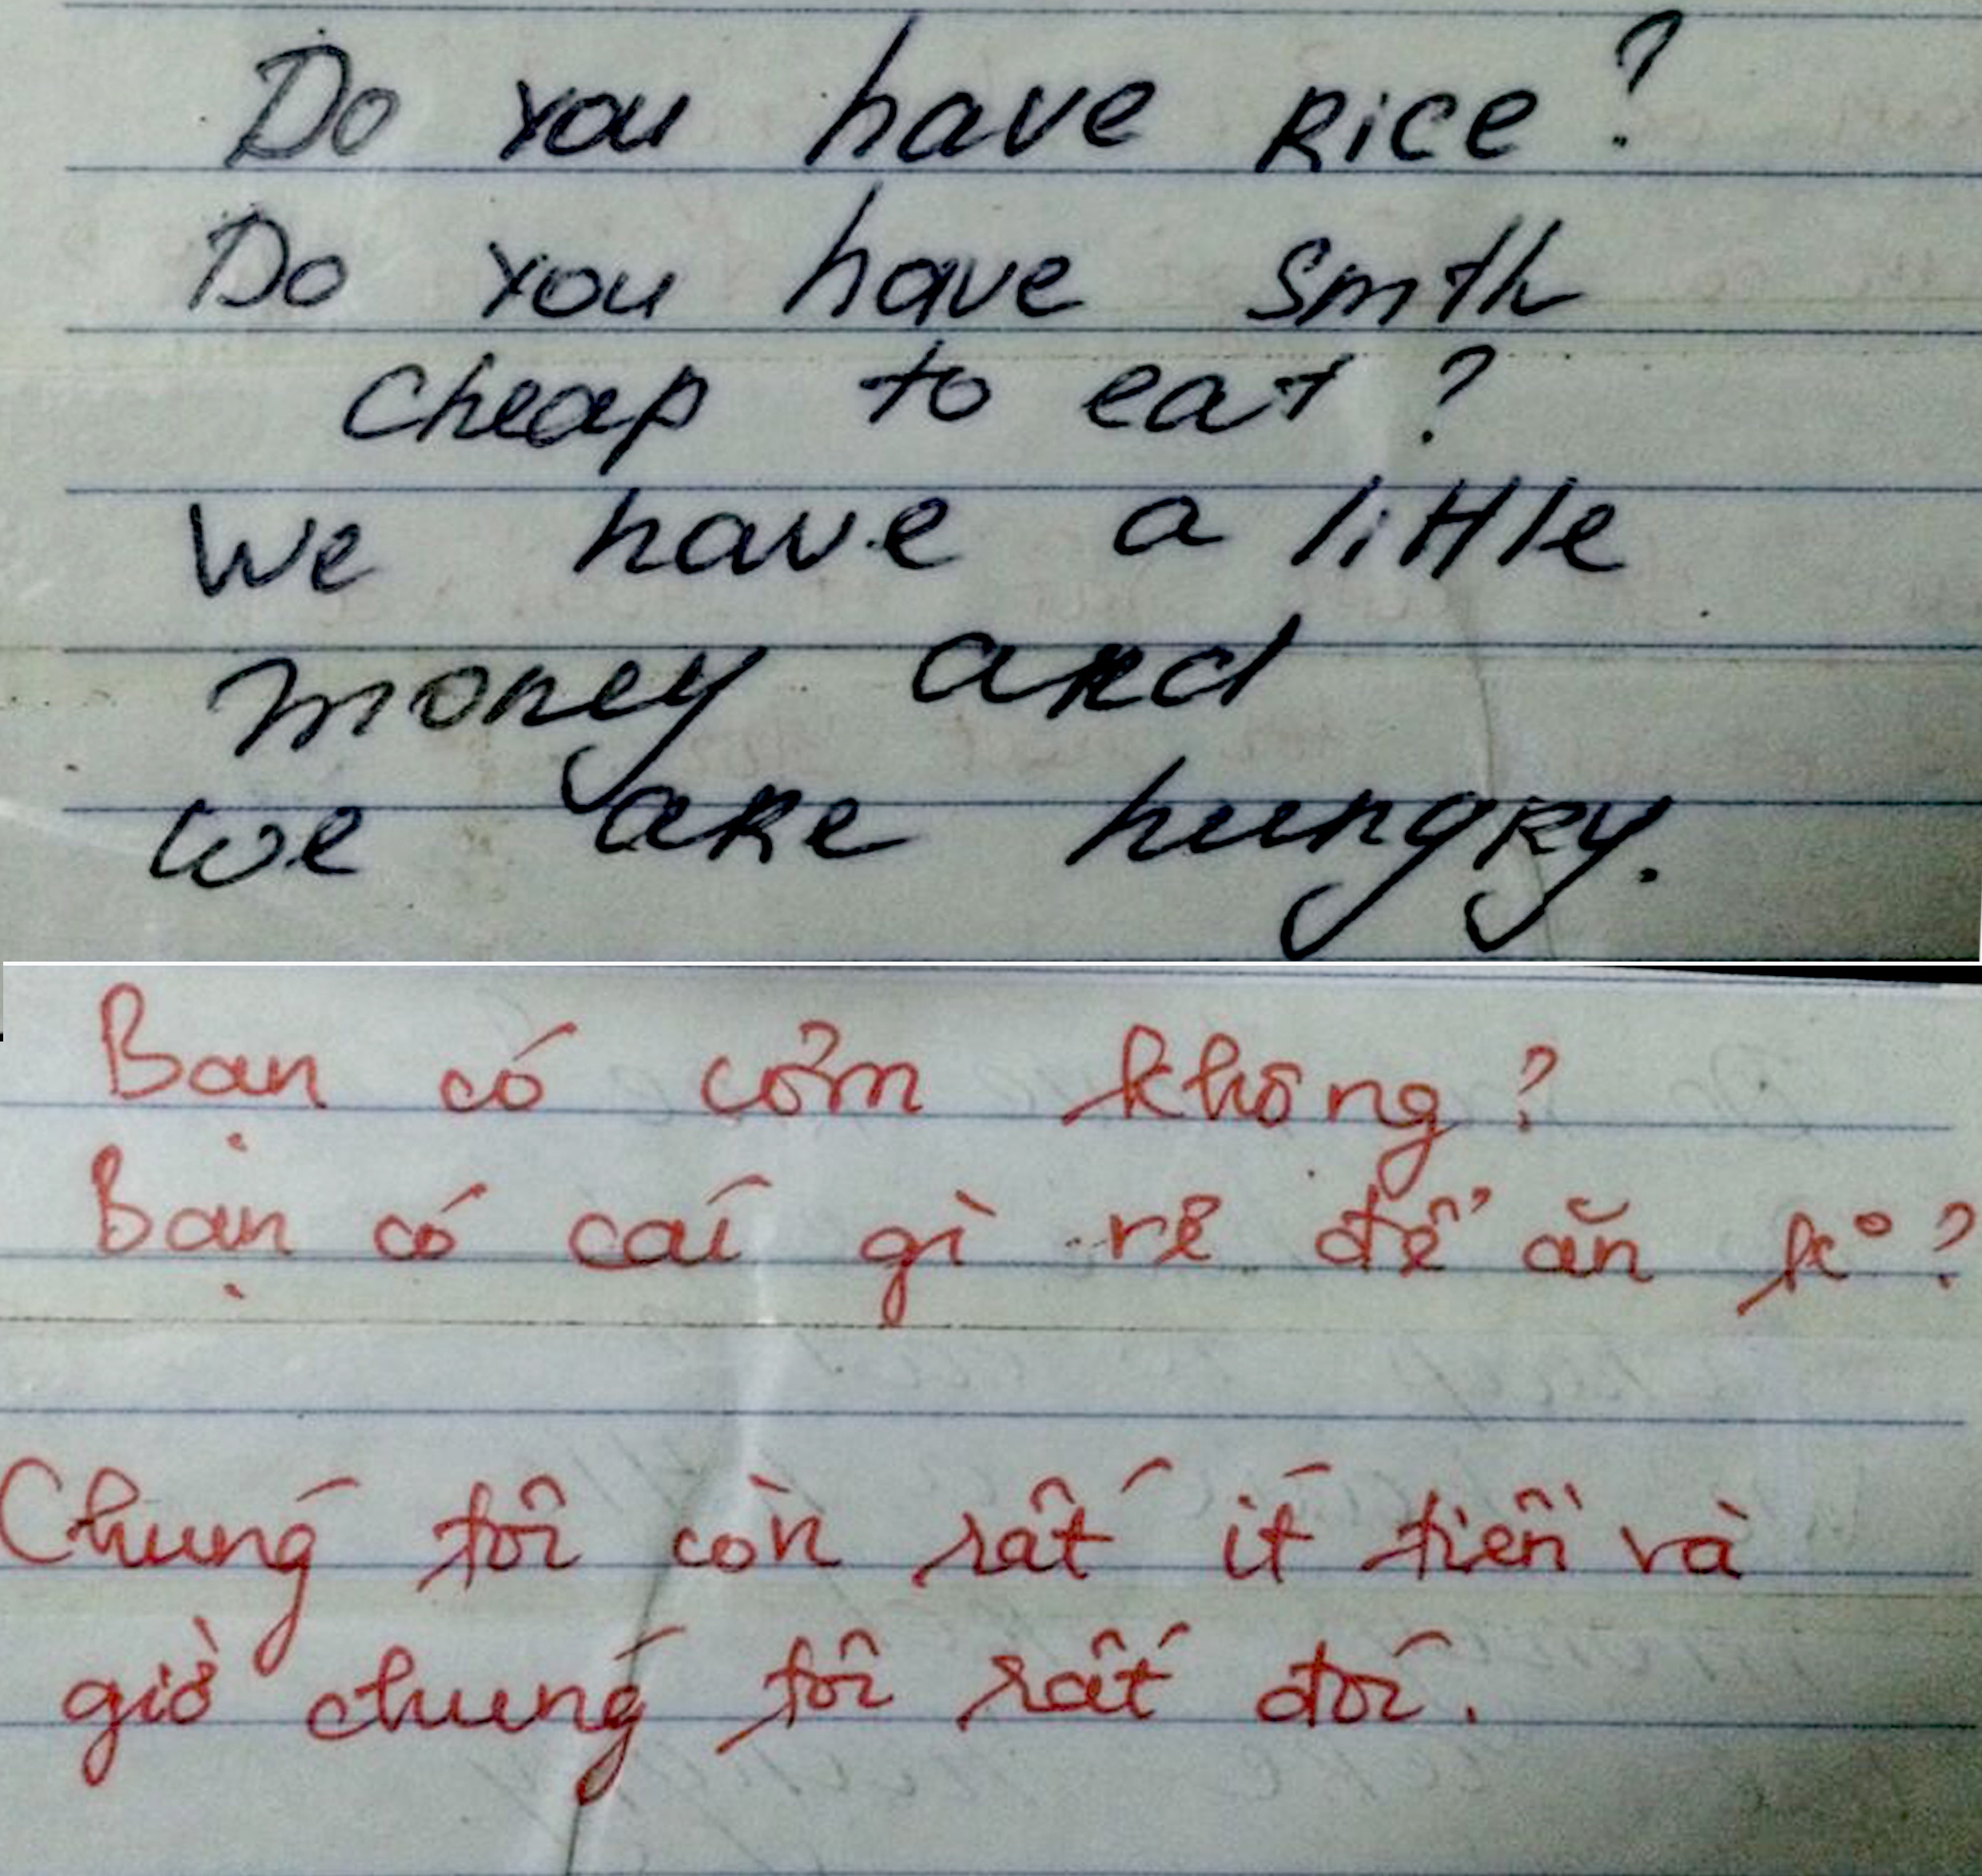 Do you have Rice?
Do you have smth
cheap to eat?
We have a little
money and
we are hungry.
Bạn có cơm không?
Bạn có cái gì rẻ để ăn ko?
Chúng tôi còn rất ít tiền và
giờ chúng tôi rất đói.